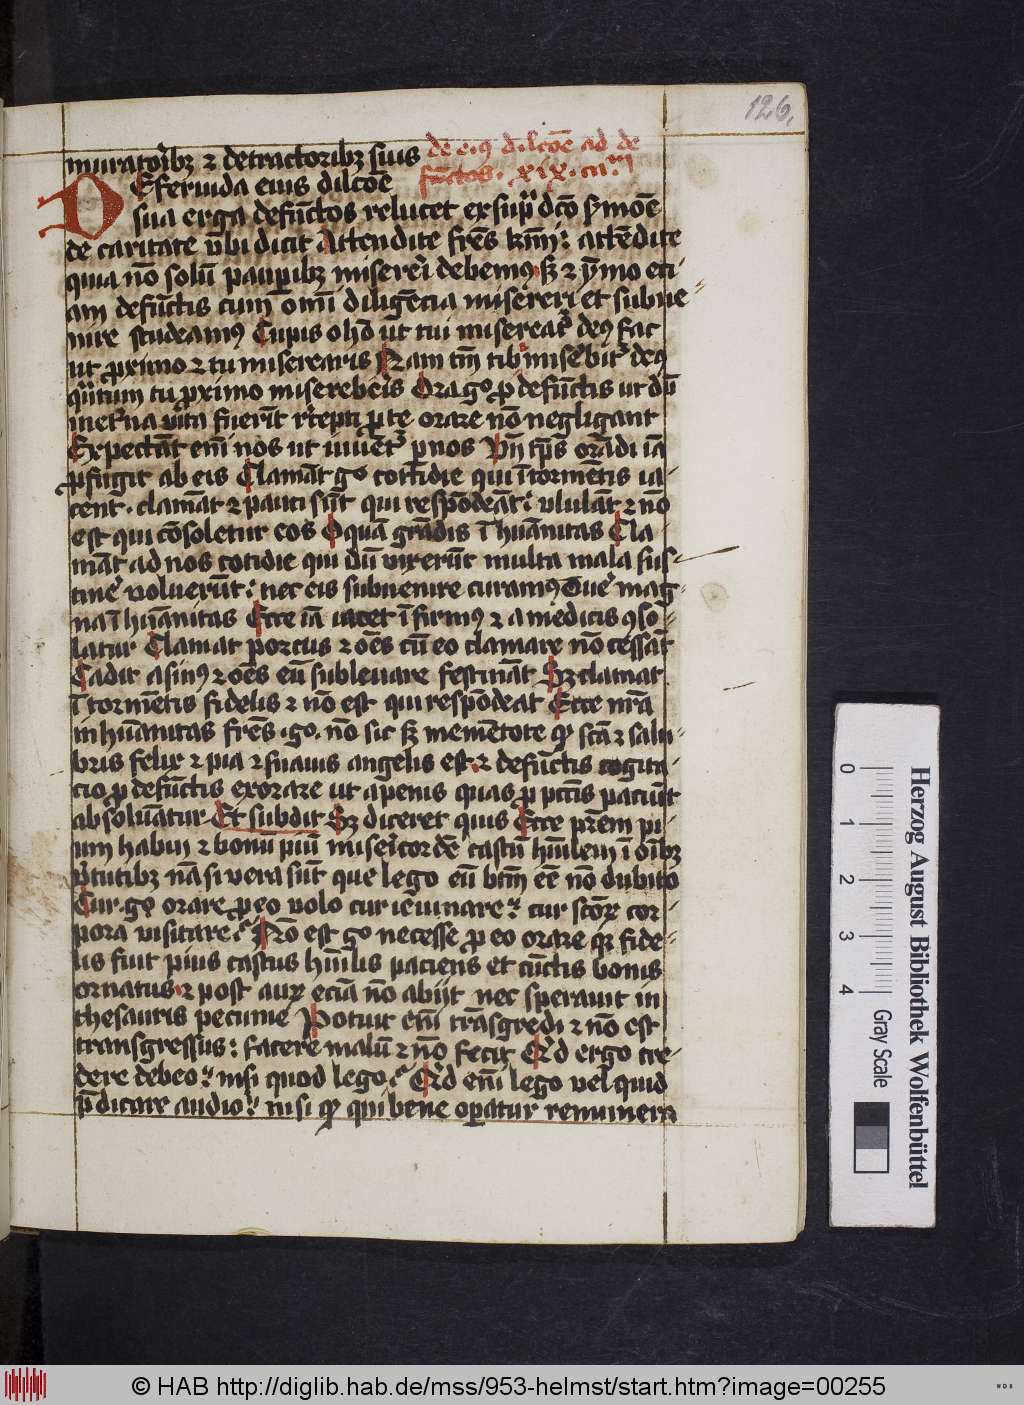 126,
muratoribꝫ ⁊ detractoribꝫ suis
de eiꝯ dilcōe ad de
functos. xix. caᵐ
DE feruida eius dilcōe
sua erga defūctos relucet ex sup̄ dc̄o s̄mōe
de caritate vbi dicit Attendite fr̄es km̄i: attēdite
quia nō solū paupibꝫ misereri debemꝰ sꝫ ⁊ ymo eti-
am defūctis cum omī diligēcia misereri et subue-
nire studeamꝰ Cupis o hō ut tui misereat᷑ deꝰ fac
ut proximo ⁊ tu miserearis Nam tm̄ tibi misebit᷑ deꝰ
qn̄tum tu proximo misereberis Ora gͦ ꝓ defūctis ut dū
in et᷑na vita fuerīt recepti pro te orare nō negligant
Expectāt em̄ nos ut iuuēt᷑ p nos Nā tp̄s orādi iā
ꝓfugit ab eis Clamāt gͦ cottidie qui ī tormētis ia-
cent. clamāt ⁊ pauci sūt qui respōdeāt: vlulāt ⁊ nō
est qui cōsoletur eos O quā grādis īhuānitas Cla
māt ad nos cotidie qui dū vixerūt multa mala sus-
tine᷑ voluerūt: nec eis subuenire curamꝰ Vtiqꝫ mag-
na īhuānitas Ecce iā iacet īfirmꝰ ⁊ a medicis ꝯso-
latur Clamat porcus ⁊ oēs cū eo clamare nō cessāt
Cadit asinꝰ ⁊ oēs eū subleuare festināt Sꝫ clamat
ī tormētis fidelis ⁊ nō est qui respōdeat Ecce nr̄a
inhuānitas fr̄es. gͦ. nō sic sꝫ memētote qꝫ scā ⁊ salu-
bris felix ⁊ pia ⁊ suauis angelis est ⁊ defūctis cogita-
cio ꝓ defūctis exorare ut a penis quas ꝓ pctīs paciūt
absoluātur Et subdit Sꝫ diceret quis Ecce pr̄em pi-
um habui ⁊ bonū piū misericordē castū hūilem ī oībꝫ
ꝟtutibꝫ nā si vera sūt que lego eū btm̄ eē nō dubito
Cur gͦ orare ꝓ eo volo cur ieiunare: cur scōꝝ cor-
pora visitare? Nō est gͦ necesse ꝓ eo orare qꝛ fide-
lis fuit pius castus hūilis paciens et cūctis bonis
ornatus ⁊ post auꝝ eciā nō abijt nec sperauit in
thesauris pecunie Potuit em̄ trāsgredi ⁊ nō est
transgressus: facere malū ⁊ nō fecit Qͥd ergo cre-
dere debeo: nisi quod lego? Qͥd em̄ lego vel quid
p̄dicare audio: nisi qꝫ qui bene oꝑatur remunera
Herzog August Bibliothek Wolfenbüttel
0 1 2 3 4
Gray Scale
© HAB http://diglib.hab.de/mss/953-helmst/start.htm?image=00255